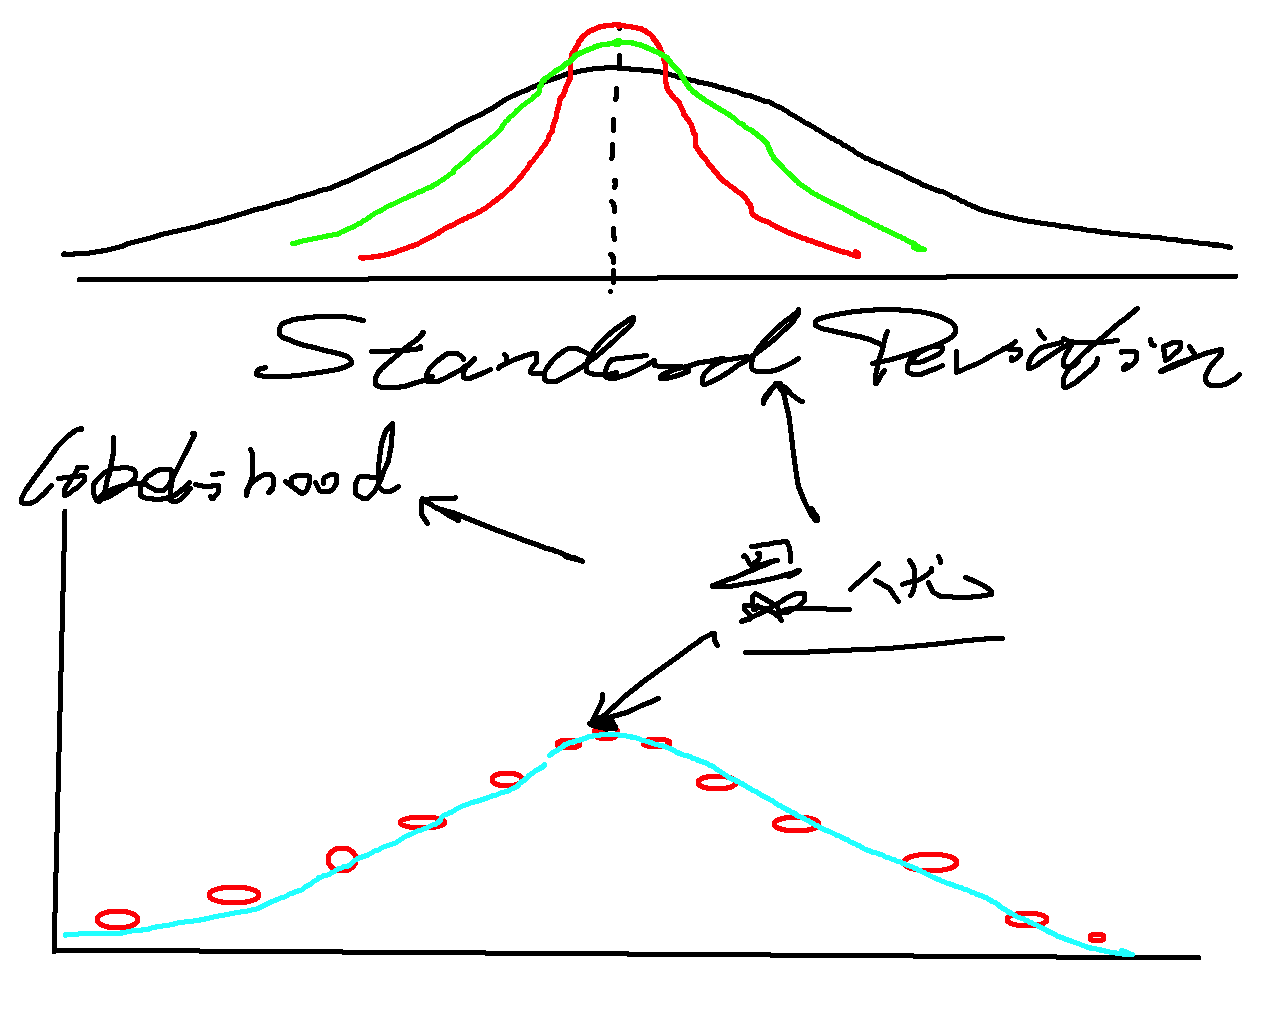 Standard Deviation
Likelihood
最优